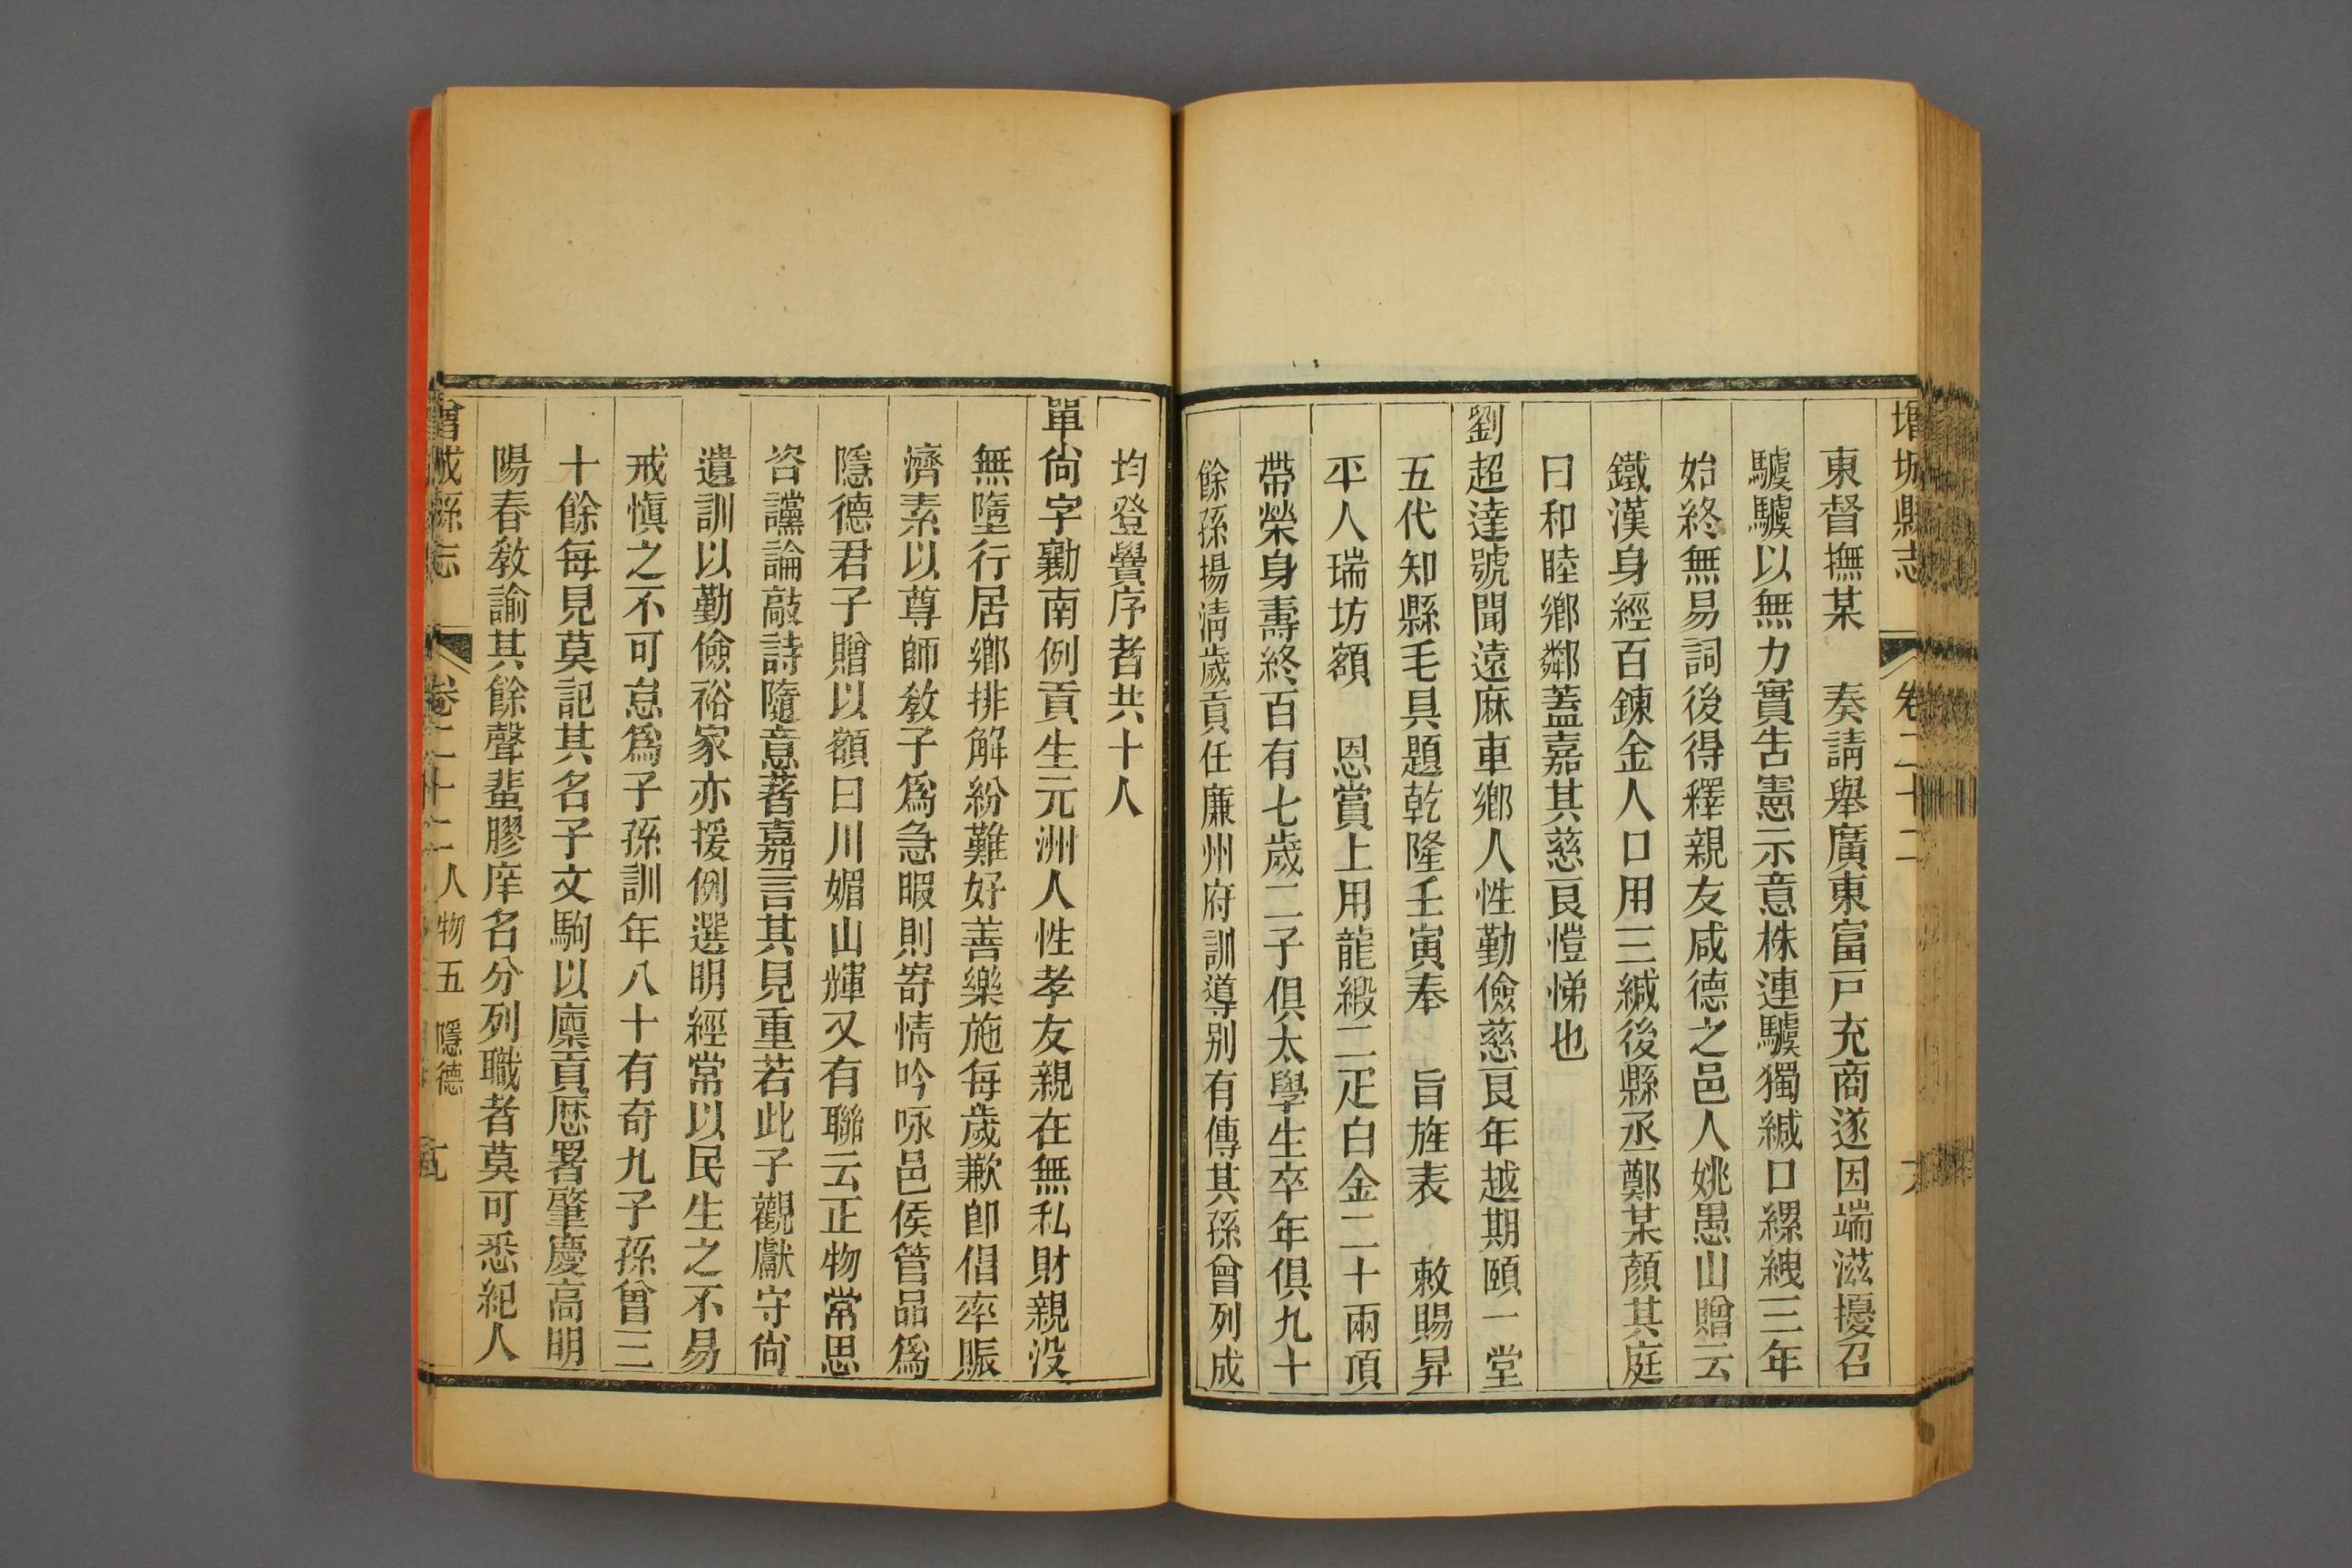 增城縣志 卷二十二
東督撫某 奏請舉廣東富戸充商遂因端滋擾召
驉驉以無力實吿憲示意株連驉獨緘口縲絏三年
始終無易詞後得釋親友咸德之邑人姚愚山贈云
鐵漢身經百鍊金人口用三緘後縣丞鄭某顏其庭
曰和睦鄉鄰蓋嘉其慈良愷悌也
劉超達號聞遠麻車鄉人性勤儉慈良年越期頤一堂
五代知縣毛具題乾隆壬寅奉 旨旌表 敕賜昇
平人瑞坊額 恩賞上用龍緞二疋白金二十兩頂
帶榮身壽終百有七歲二子俱太學生卒年俱九十
餘孫揚淸歲貢任廉州府訓導别有傳其孫曾列成
均登黌序者共十人
單尙字勷南例貢生元洲人性孝友親在無私財親没
無墮行居鄉排解紛難好善樂施每歲歉卽倡率賑
濟素以尊師敎子爲急暇則寄情吟咏邑侯管品爲
隱德君子贈以額曰川媚山輝又有聯云正物常思
咨讜論敲詩隨意著嘉言其見重若此子觀獻守尙
遺訓以勤儉裕家亦援例選明經常以民生之不易
戒愼之不可怠爲子孫訓年八十有奇九子孫曾三
十餘每見莫記其名子文駒以廩貢歷署肇慶高明
陽春敎諭其餘聲蜚膠庠名分列職者莫可悉紀人
曾城縣志 卷二十二 人物五 隱德